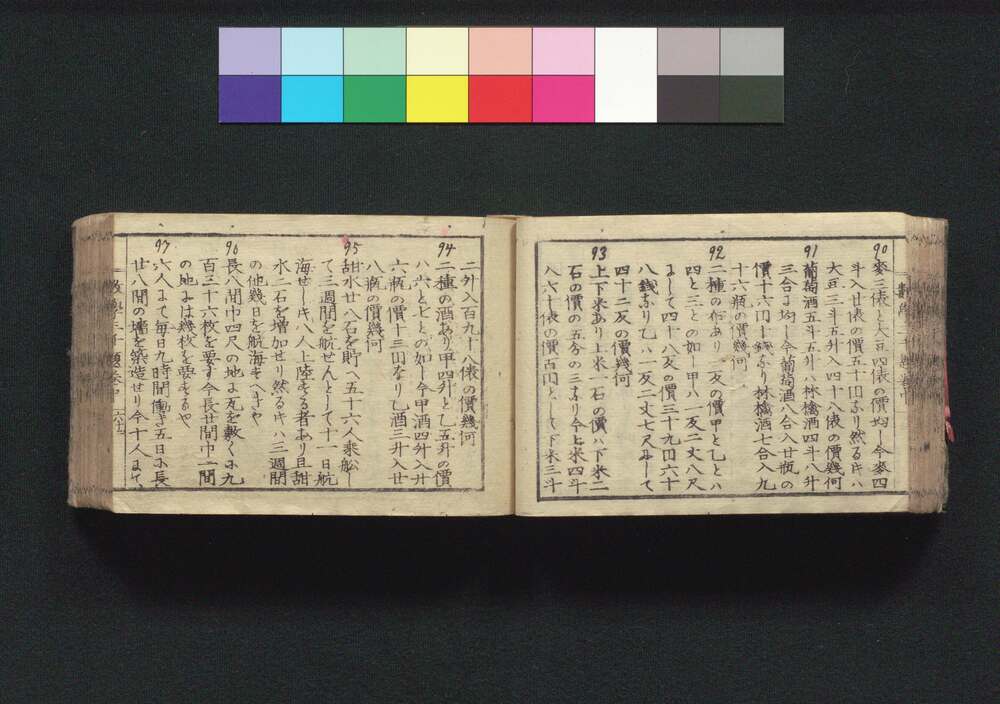 90
麥三俵と大豆四俵の價均し今麥四
斗入廿俵の價五十円なり然るキハ
大豆三斗五升入四十八俵の價幾何
91
葡萄酒五斗五升ハ林檎酒四斗八升
三合に均し今葡萄酒八合入廿瓶の
價十六円十錢なり林檎酒七合入九
十六瓶の價幾何
92
二種の布あり一反の價甲と乙とハ
四と三との如し甲ハ一反二丈八尺
にして四十八反の價三十九円六十
八錢なり乙ハ一反二丈七尺にして
四十二反の價幾何
93
上下米あり上米一石の價ハ下米二
石の價の五分の三なり今上米四斗
八六十俵の價百円として下米三斗
二升入百九十八俵の價幾何
94
二種の酒あり甲四升と乙五升の價
ハ六と七との如し今甲酒四升入廿
六瓶の價十三円なり乙酒三升入廿
八瓶の價幾何
95
甜水廿八石を貯へ五十六人乘船し
て三週間を航せんとして十一日航
海せしキハ人上陸する者あり且甜
水二石を増加せり然るキハ三週間
の他幾日を航海すへきや
96
長八間巾四尺の地に瓦を敷くに九
百三十六枚を要す今長廿間巾一間
の地には幾枚を要するや
97
六人にて毎日九時間働き五日に長
廿八間の墻を築造せり今十人にて